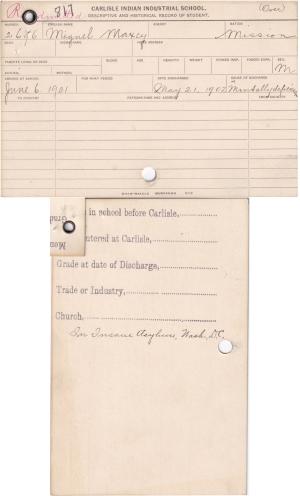 817
CARLISLE INDIAN INDUSTRIAL SCHOOL. (Over)
DESCRIPTIVE AND HISTORICAL RECORD OF STUDENT.
NUMBER ENGLISH NAME AGENCY NATION
Miguel Maxcy Mission
BAND INDIAN NAME HOME ADDRESS
PARENTS LIVING OR DEAD BLOOD AGE HEIGHT WEIGHT FORCED INSP. FORCED EXPR. SEX
M
FATHER MOTHER
ARRIVED AT SCHOOL FOR WHAT PERIOD DATE DISCHARGED CAUSE OF DISCHARGE
June 6, 1901 May 21, 1902 Mentally
TO COUNTRY PATRONS NAME AND ADDRESS FROM COUNTRY
in school before Carlisle,
entered at Carlisle,
Grade at date of Discharge,
Trade or Industry,
Church,
In Insane Asylum, Wash, D.C.